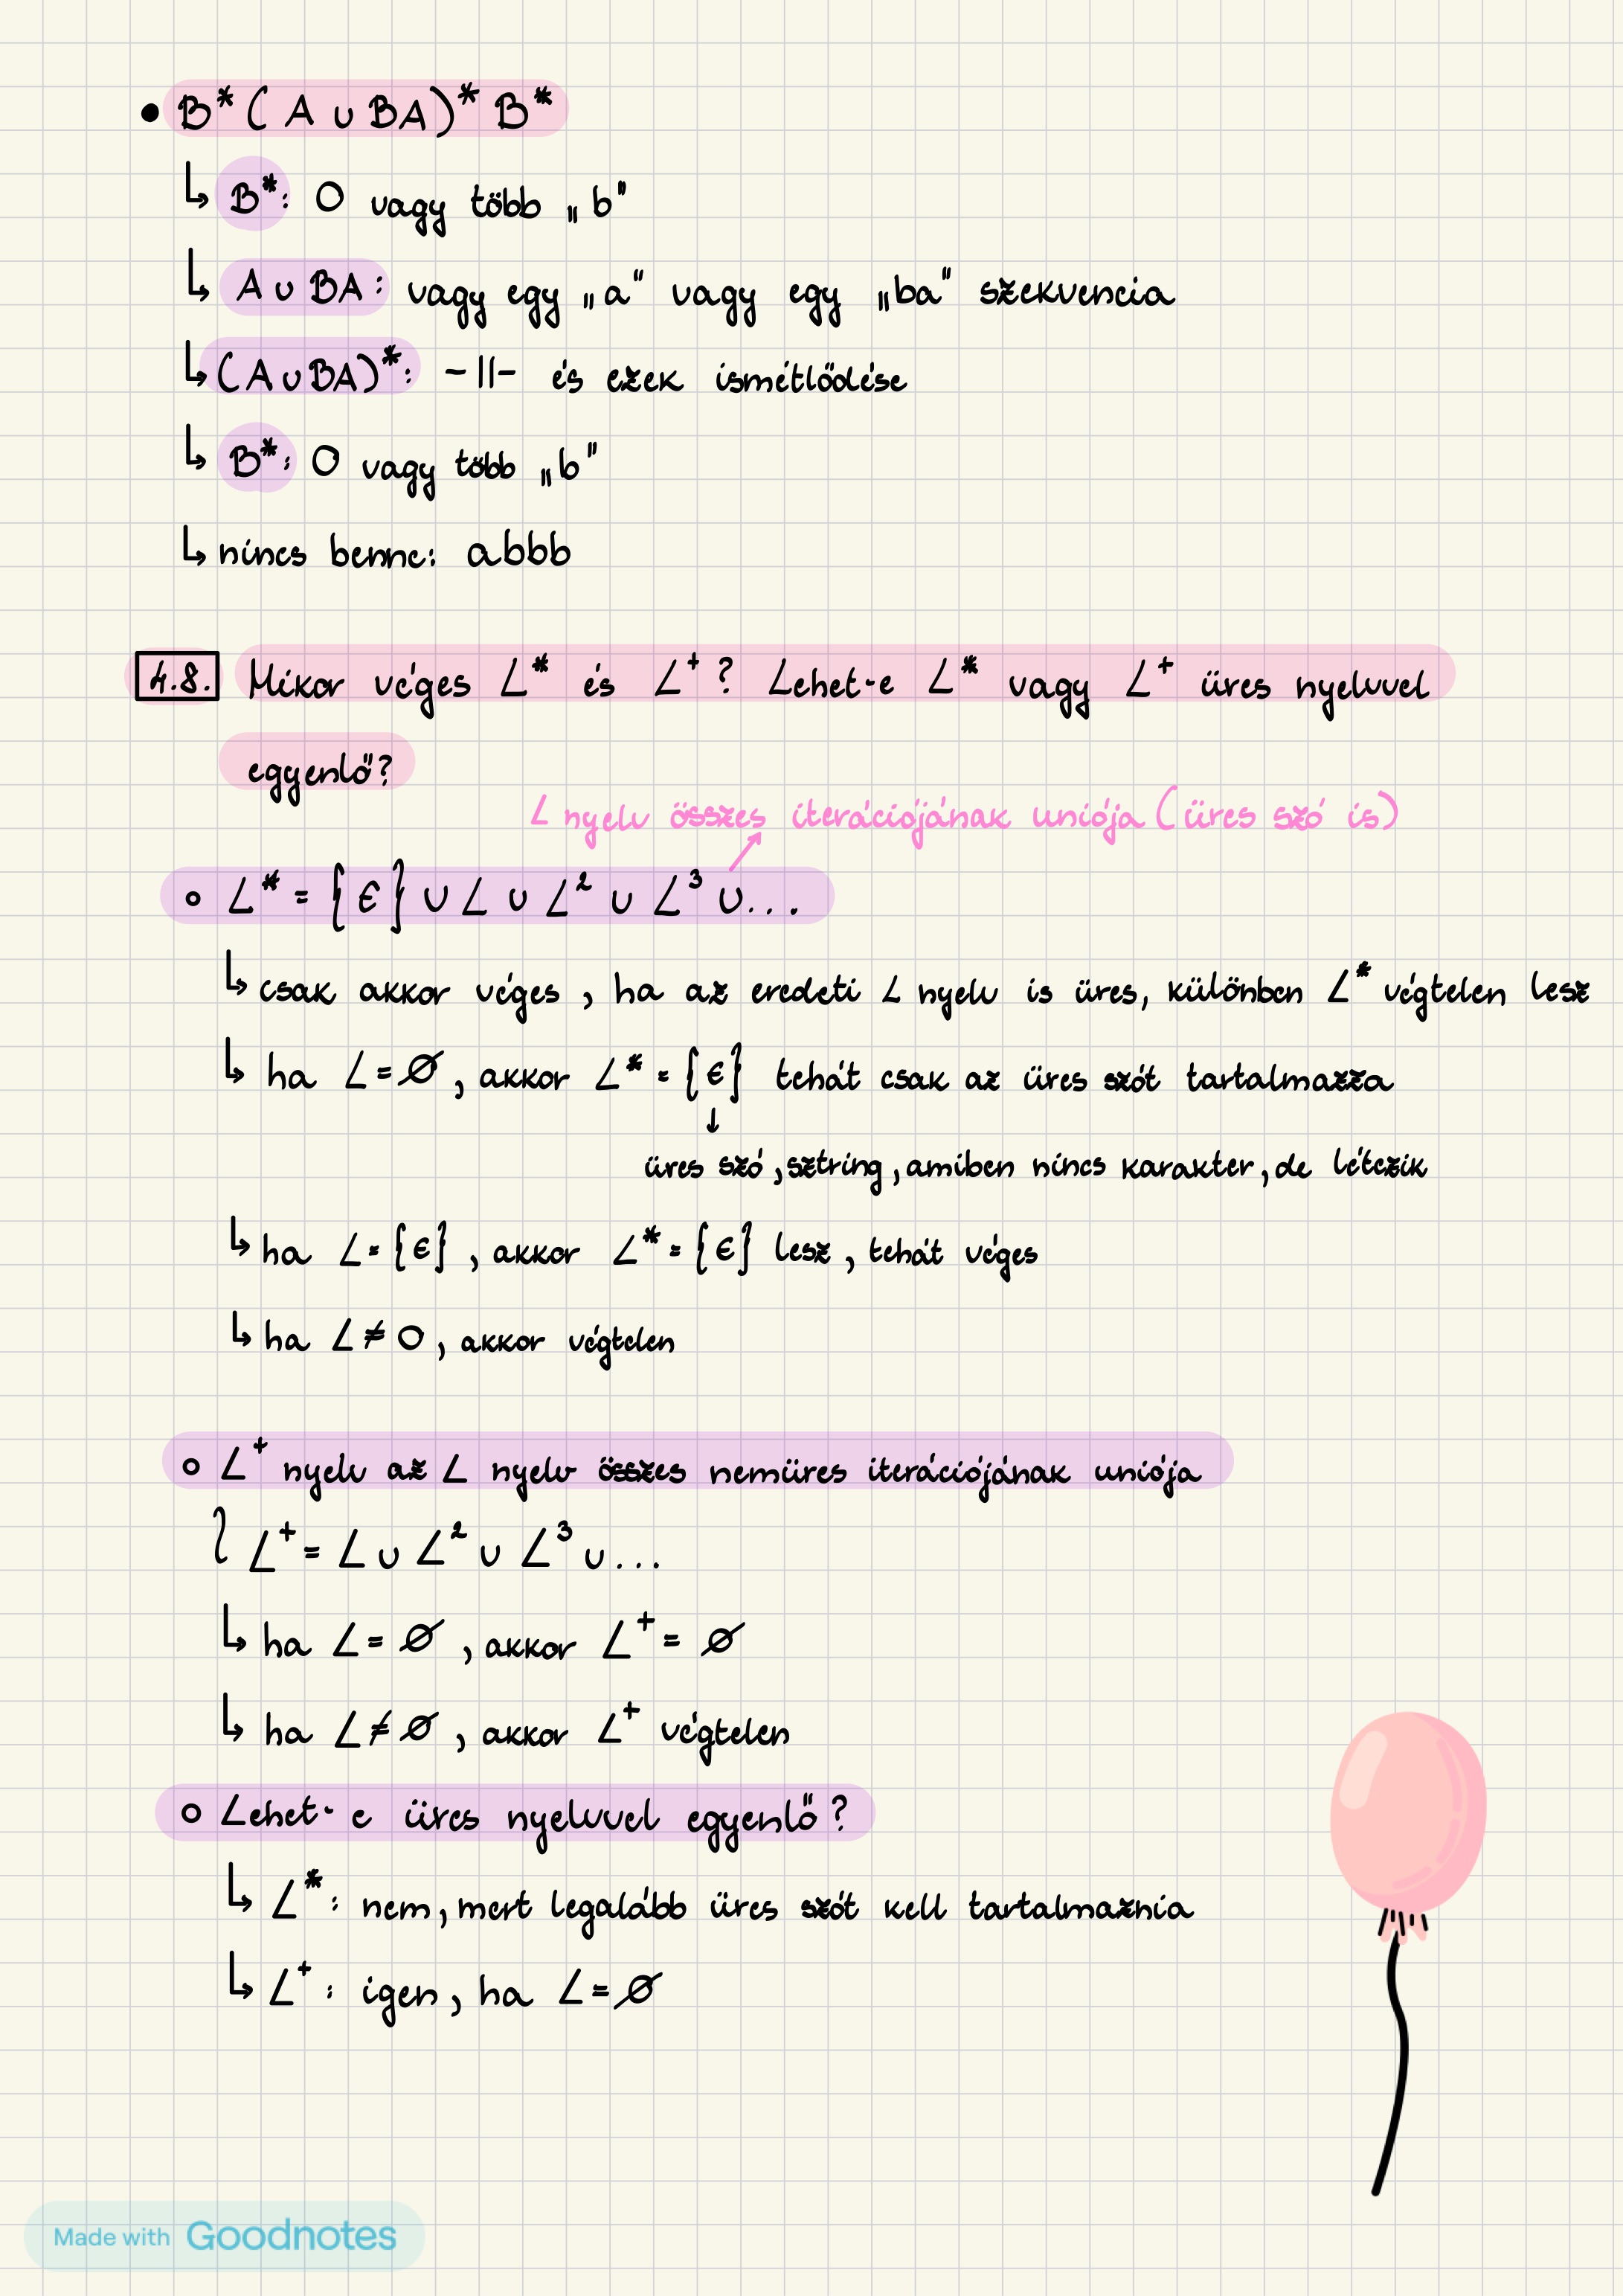 • B* ( A ∪ BA)* B*
↳ B*: 0 vagy több „b"
↳ A ∪ BA: vagy egy „a" vagy egy „ba" szekvencia
↳ (A ∪ BA)*: -||- és ezek ismétlődése
↳ B*: 0 vagy több „b"
↳ nincs benne: abbb
4.8. Mikor véges L* és L⁺? Lehet-e L* vagy L⁺ üres nyelvvel
egyenlő?
L nyelv összes iterációjának uniója (üres szó is)
∘ L* = {ε} ∪ L ∪ L² ∪ L³ ∪...
↳ csak akkor véges, ha az eredeti L nyelv is üres, különben L* végtelen lesz
↳ ha L=∅, akkor L* = {ε} tehát csak az üres szót tartalmazza
↓
üres szó, sztring, amiben nincs karakter, de létezik
↳ ha L={ε}, akkor L*={ε} lesz, tehát véges
↳ ha L≠0, akkor végtelen
∘ L⁺ nyelv az L nyelv összes nemüres iterációjának uniója
L⁺= L ∪ L² ∪ L³ ∪...
↳ ha L= ∅, akkor L⁺= ∅
↳ ha L≠∅, akkor L⁺ végtelen
∘ Lehet-e üres nyelvvel egyenlő?
↳ L*: nem, mert legalább üres szót kell tartalmaznia
↳ L⁺: igen, ha L=∅
Made with Goodnotes